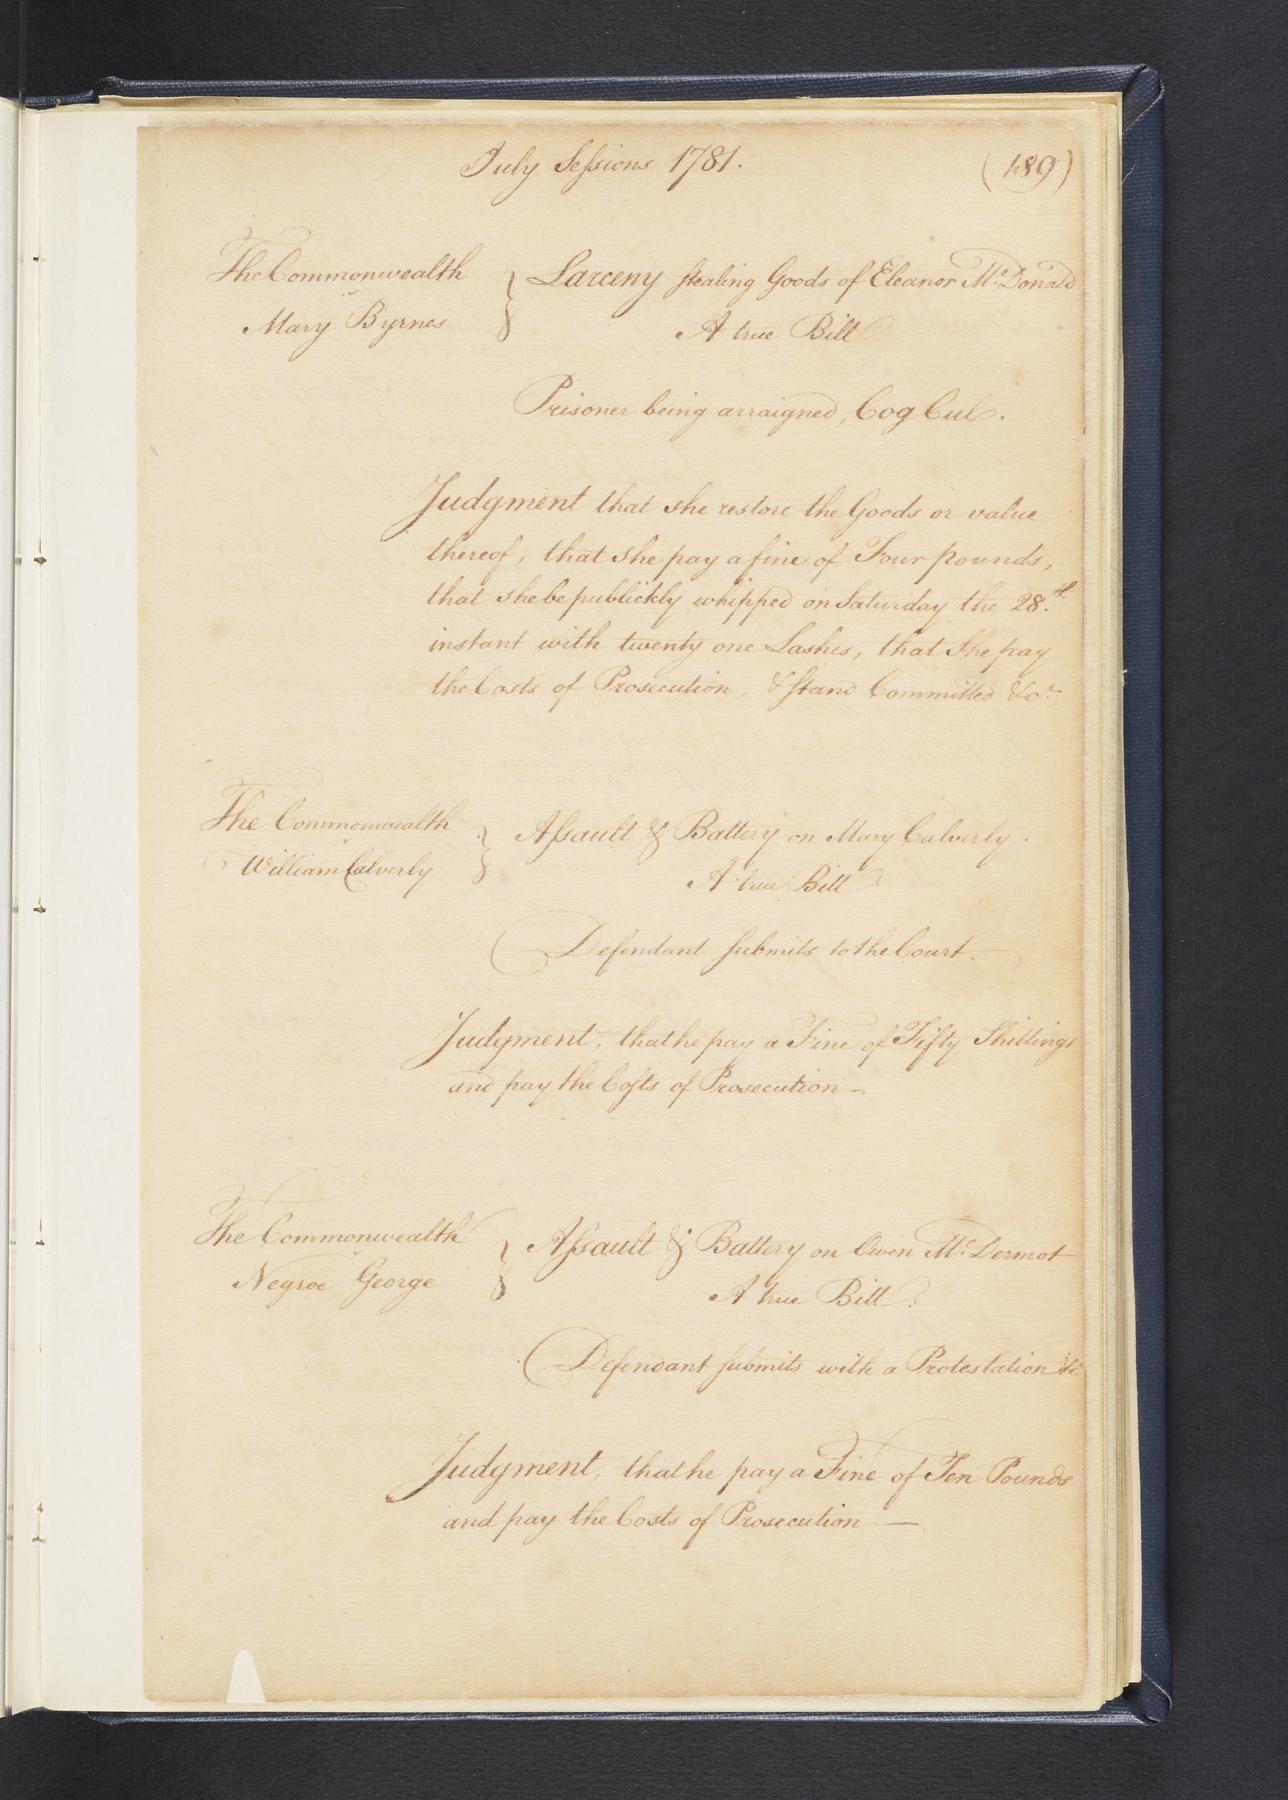 July Sessions 1781.
(189)
The Commonwealth
v
Mary Byrnes
Larceny stealing Goods of Eleanor McDonald
A true Bill
Prisoner being arraigned, Cog Cul.
Judgment that she restore the Goods or value
thereof, that she pay a fine of Four pounds,
that she be publickly whipped on Saturday the 28.th
instant with twenty one Lashes, that She pay
the Costs of Prosecution, & stand Committed &c.
The Commonwealth
v
William Calverly
Assault & Battery on Mary Calverly.
A true Bill
Defendant submits to the Court.
Judgment, that he pay a Fine of Fifty Shillings
and pay the Costs of Prosecution –
The Commonwealth
v
Negroe George
Assault & Battery on Owen McDermot
A true Bill.
Defendant submits with a Protestation &c.
Judgment, that he pay a Fine of Ten Pounds
and pay the Costs of Prosecution —